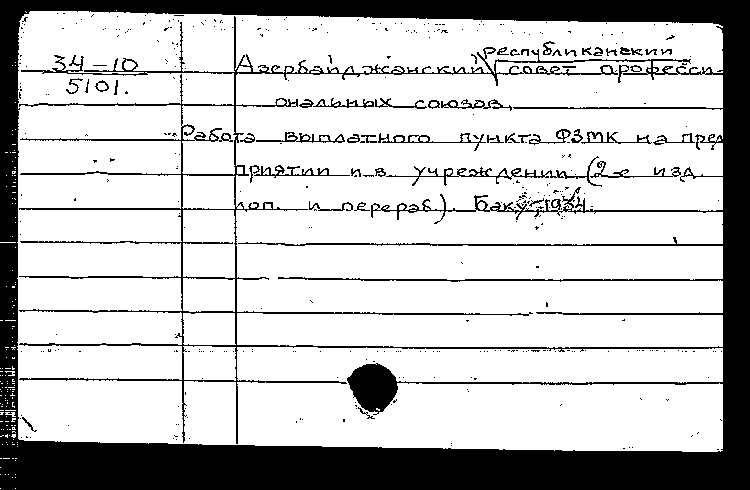 34-10
5101.
республиканский
Азербайджанский √ совет професси-
ональных союзов.
Работа выплатного пункта ФЗМК на пред
приятии и в учреждении (2-е изд.
доп. и перераб). Баку, 1934.